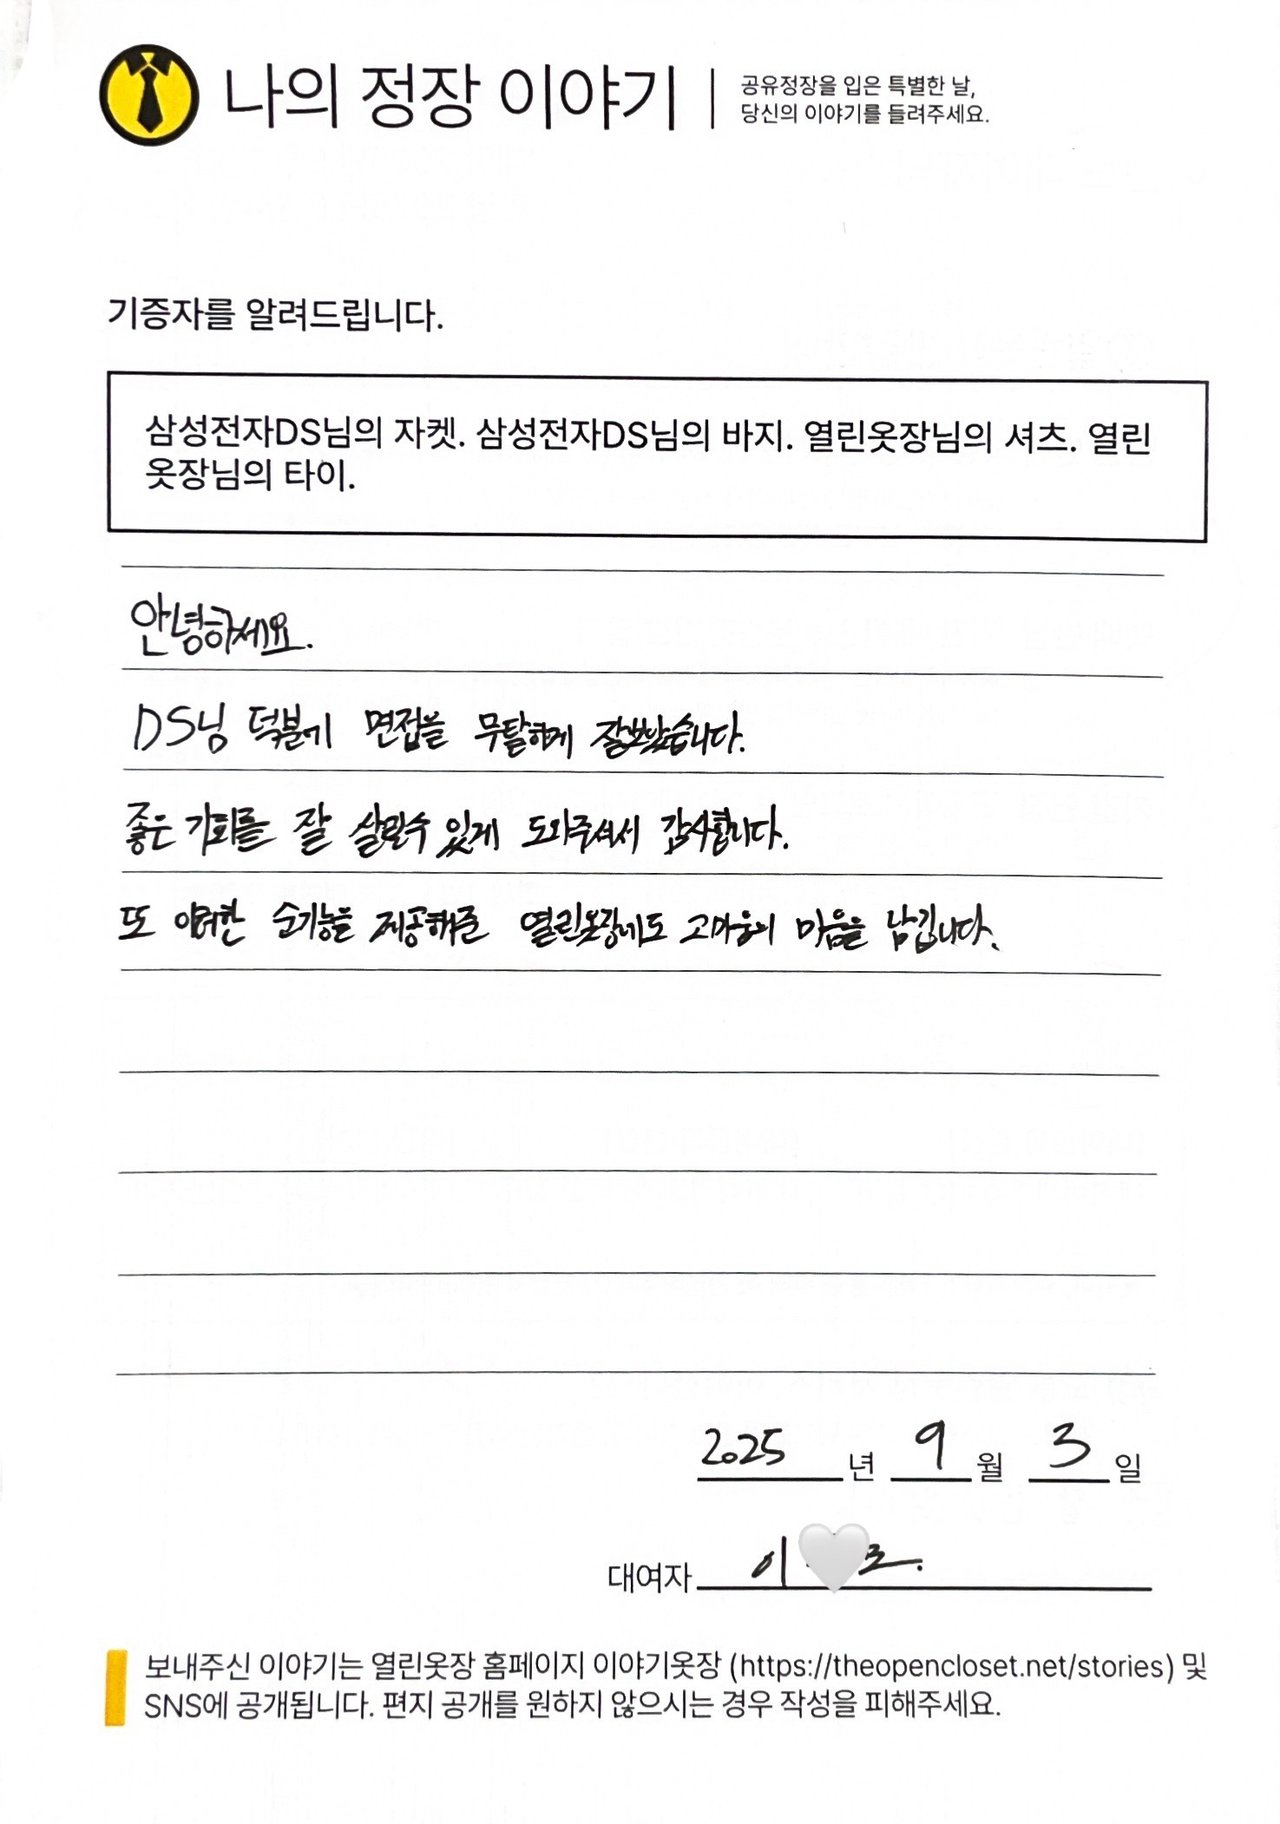 나의 정장 이야기
공유정장을 입은 특별한 날,
당신의 이야기를 들려주세요.
기증자를 알려드립니다.
삼성전자DS님의 자켓. 삼성전자DS님의 바지. 열린옷장님의 셔츠. 열린
옷장님의 타이.
안녕하세요.
DS님 덕분에 면접을 무탈하게 잘보았습니다.
좋은 기회를 잘 살릴수 있게 도와주셔서 감사합니다.
또 이러한 순기능을 제공해준 열린옷장에도 고마움의 마음을 남깁니다.
2025 년 9 월 3 일
대여자 이
보내주신 이야기는 열린옷장 홈페이지 이야기옷장 (https://theopencloset.net/stories) 및
SNS에 공개됩니다. 편지 공개를 원하지 않으시는 경우 작성을 피해주세요.